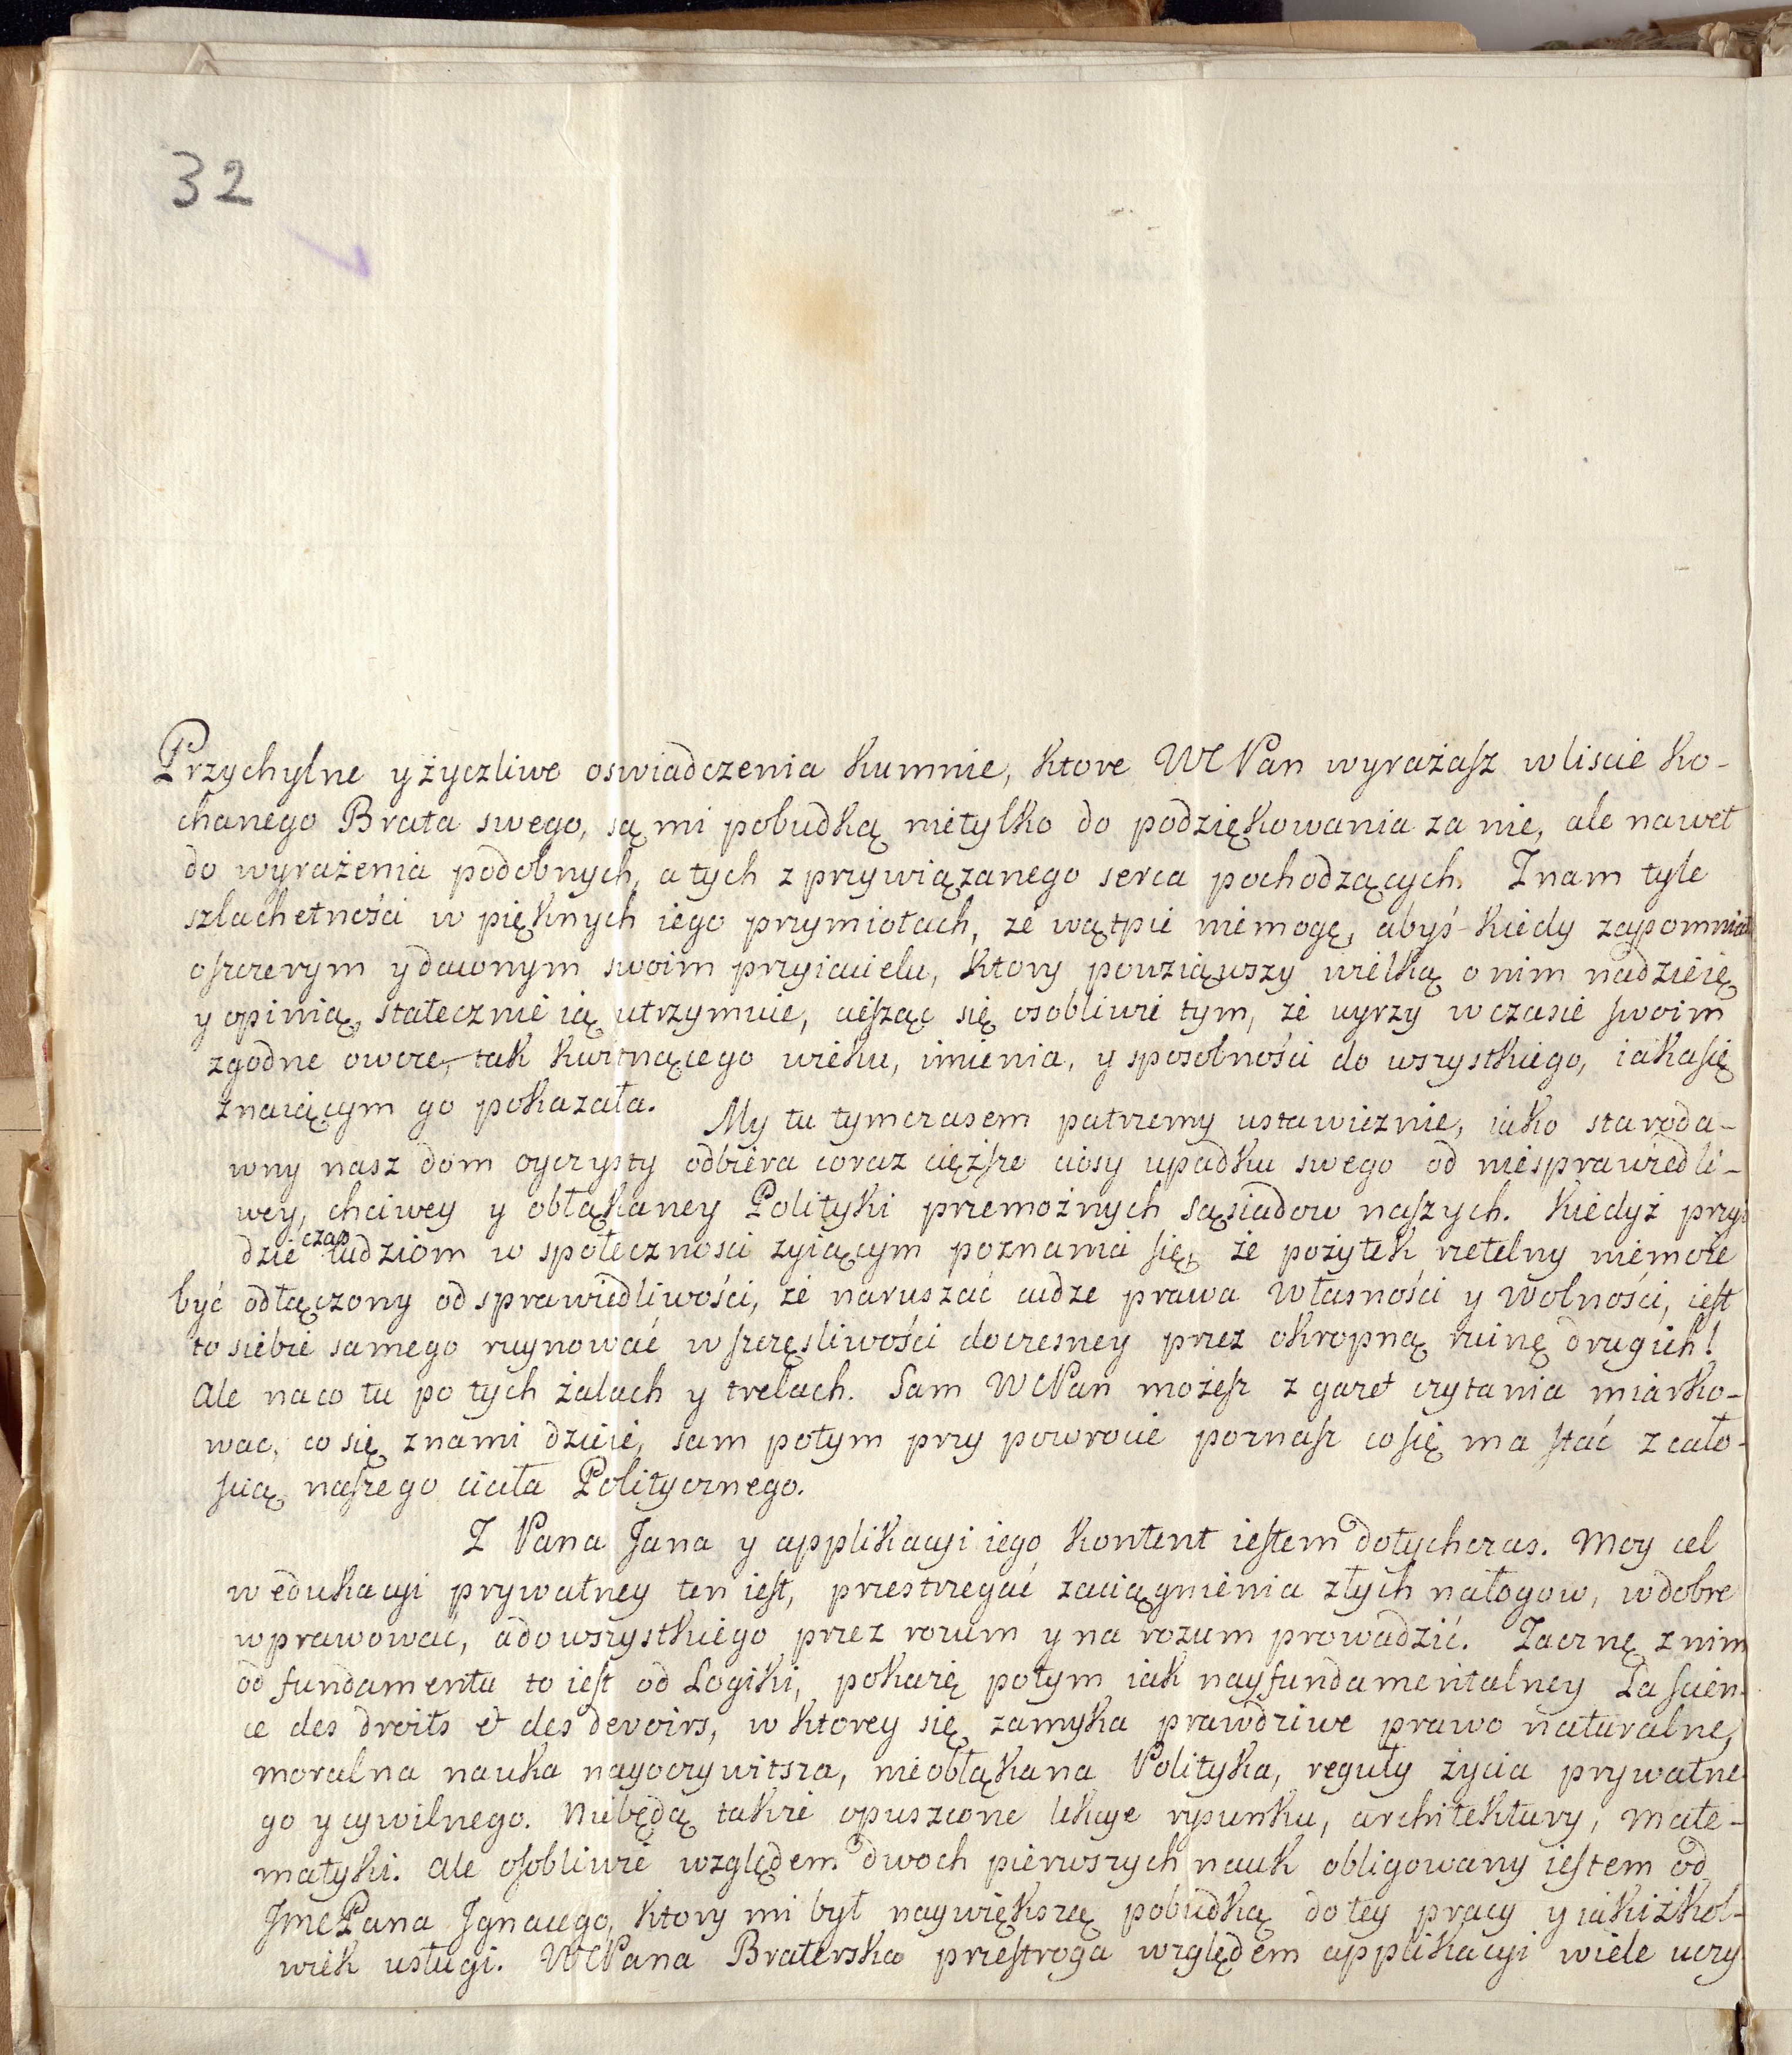 32
Przychylne y życzliwe oswiadczenia kumnie, ktore WPan wyrażasz w liscie ko-
chanego Brata swego, są mi pobudką nietylko do podziękowania za nie, ale nawet
do wyrażenia podobnych, a tych z przywiązanego serca pochodzących. Znam tyle
szlachetności w pięknych iego przymiotach, że wątpić niemogę, abyś kiedy zapomniał
oszczerym y dawnym swoim przyiacielu, ktory powziąwszy wielką o nim nadzieię
y opinią, statecznie ią utrzymuie, ciesząc się osobliwie tym, że uyrzy w czasie swoim
zgodne owoce, tak kwitnącego wieku, imienia, y sposobności do wszystkiego, iaka się
znaiącym go pokazała. My tu tymczasem patrzemy ustawicznie, iako staroda-
wny nasz dom oyczysty odbiera coraz cięższe ciosy upadku swego od niesprawiedli-
wey, chciwey y obłąkaney Polityki przemożnych sąsiadow naszych. Kiedyż przyi
dzie czas ludziom w społecznosci zyiącym poznania się, że pożytek rzetelny niemoże
być odłączony od sprawiedliwości, że naruszać cudze prawa Własności y Wolności, iest
to siebie samego ruynować w szczęsliwości doczesney przez okropną ruinę drugich!
Ale na co tu po tych żalach y trelach. Sam WPan możesz z gazet czytania miarko-
wac, co się z nami dzieie, sam potym przy powrocie poznasz co się ma stać z cało-
scią naszego ciała Politycznego.
Z Pana Jana y applikacyi iego kontent iestem dotychczas. Moy cel
w edukacyi prywatney ten iest, przestrzegać zaciągnienia złych nałogow, w dobre
wprawować, a do wszystkiego przez rozum y na rozum prowadzić. Zacznę z nim
od fundamentu to iest od Logiki, pokażę potym iak nayfundamentalney La scien-
ce des droits et des devoirs, w ktorey się zamyka prawdziwe prawo naturalne,
moralna nauka nayoczywitsza, nieobłąkana Polityka, reguły życia prywatne-
go y cywilnego. Niebędą takze opuszczone lekcye rysunku, architektury, Mate-
matyki. Ale osobliwie względem dwoch pierwszych nauk obligowany iestem od
JmcPana Ignacego, ktory mi był naywiększą pobudką do tey pracy y iakiżkol-
wiek usługi. WPana Braterska przestroga względem applikacyi wiele uczy